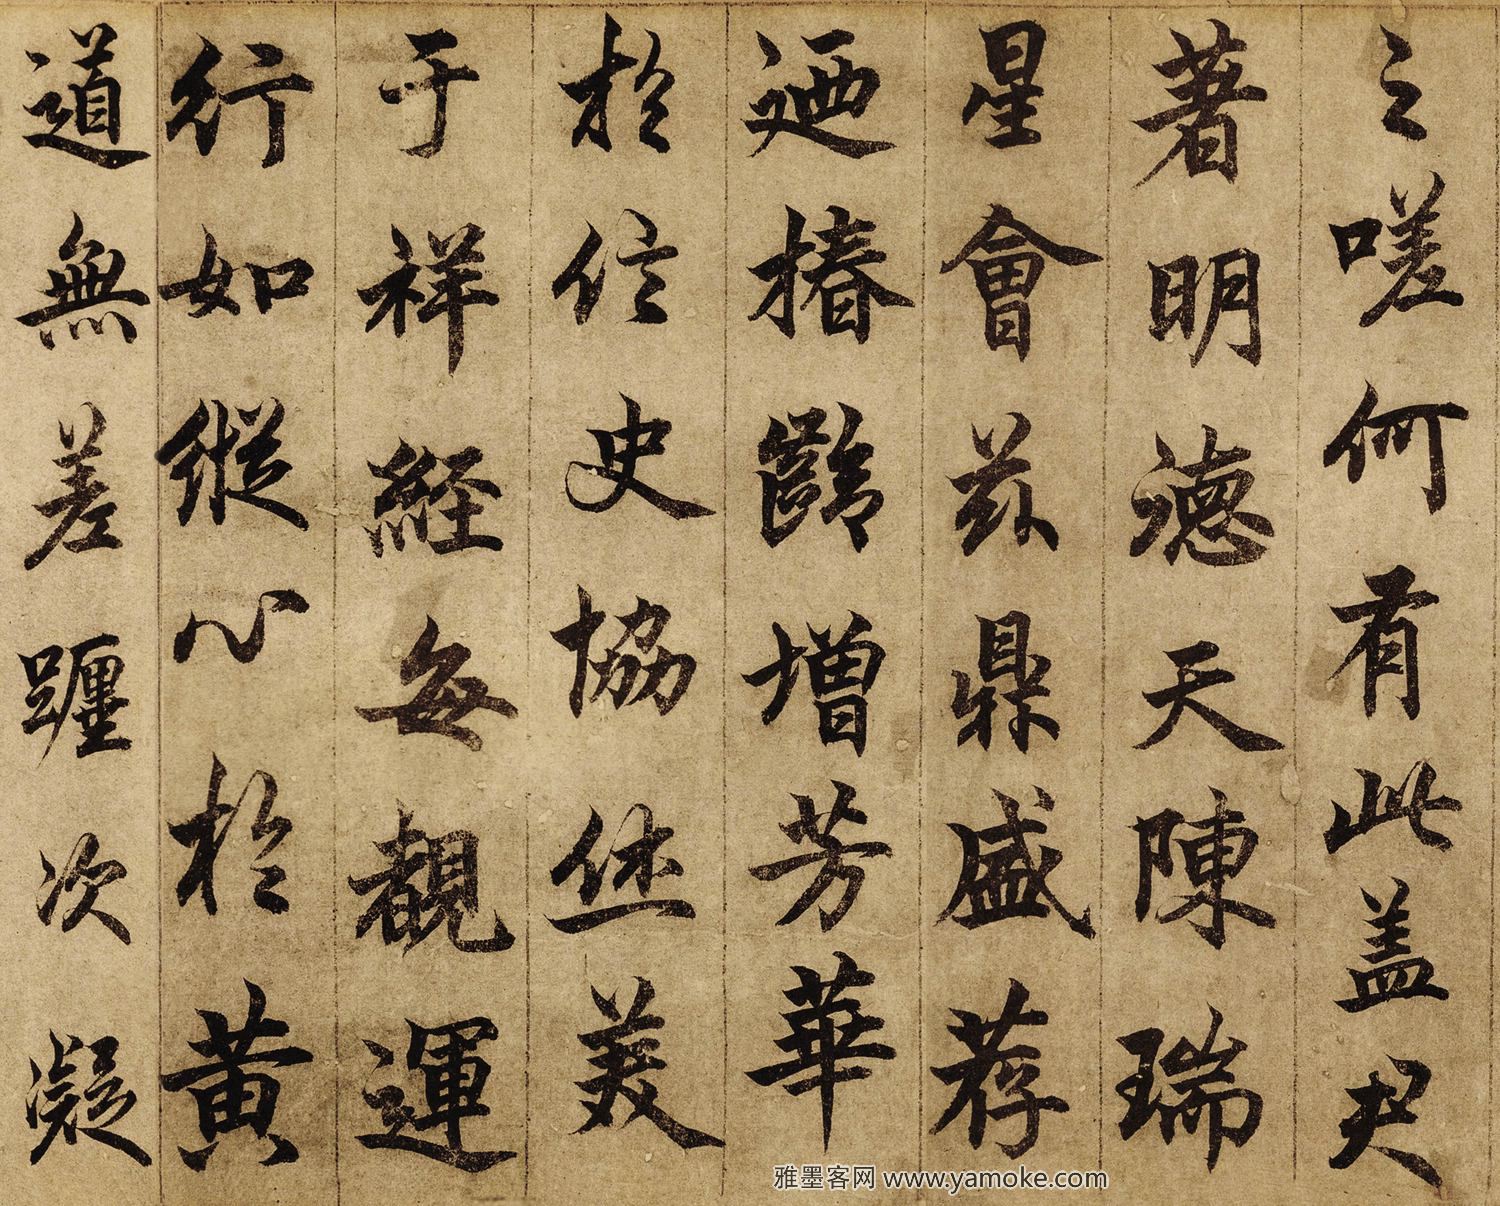 之嗟何有此盖君
著明德天陳瑞
星會兹鼎盛荐
迺椿齡增芳華
於信史協休美
于祥經每觀運
行如縱心於黄
道無差躔次凝
雅墨客网 www.yamoke.com